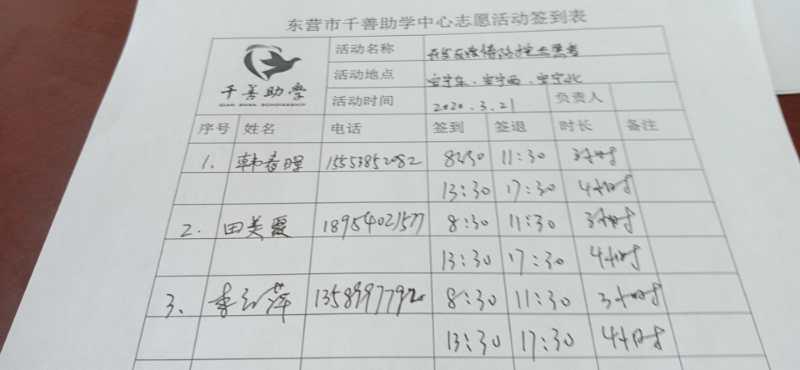 东营市千善助学中心志愿活动签到表
千善助学
QIAN SHAN SCHOLARSHIP
活动名称
活动地点 安宁东、安宁西、安宁北
活动时间 2020.3.21 负责人
序号 姓名 电话 签到 签退 时长 备注
1. 韩春晖 15553852082 8:30 11:30 3小时
13:30 17:30 4小时
2. 田美霞 18954021577 8:30 11:30 3小时
13:30 17:30 4小时
3、 李红萍 13589977920 8:30 11:30 3小时
13:30 17:30 4小时